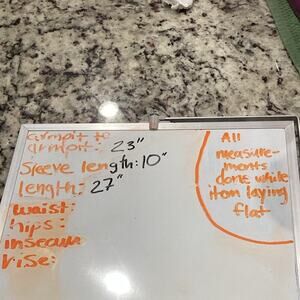 armpit to
armpit: 23"
Sleeve length: 10"
length: 27"
waist:
hips:
inseam
rise:
All
measure-
ments
done while
item laying
flat